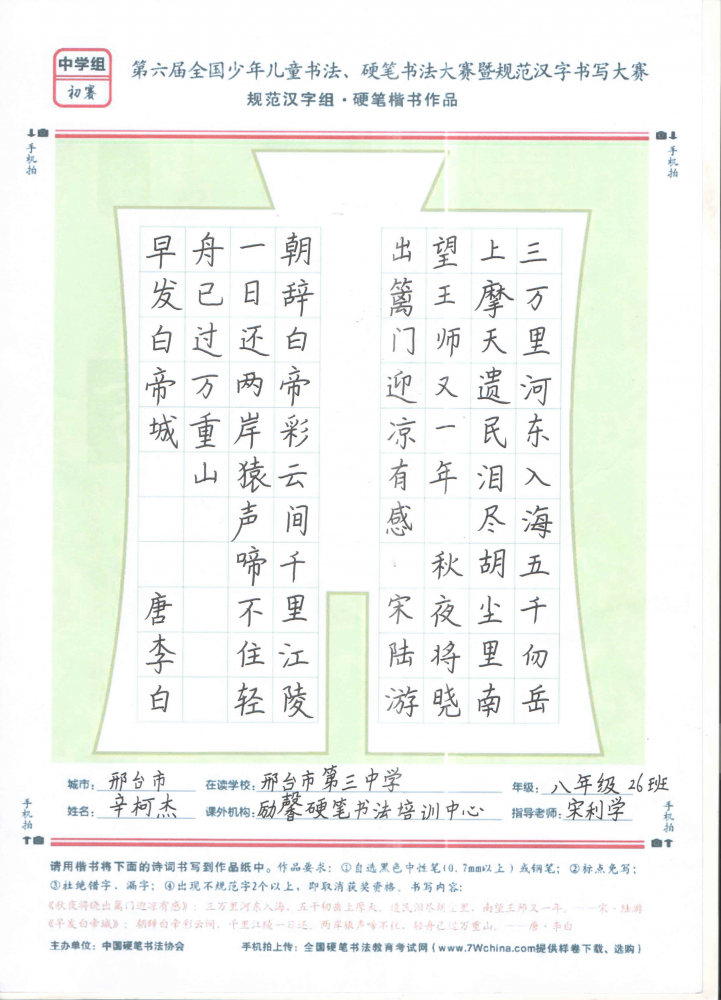 中学组
初赛
第六届全国少年儿童书法、硬笔书法大赛暨规范汉字书写大赛
规范汉字组·硬笔楷书作品
手机拍
手机拍
三万里河东入海五千仞岳
上摩天遗民泪尽胡尘里南
望王师又一年 秋夜将晓
出篱门迎凉有感 宋陆游
朝辞白帝彩云间千里江陵
一日还两岸猿声啼不住轻
舟已过万重山
早发白帝城 唐李白
手机拍
手机拍
城市: 邢台市 在读学校: 邢台市第三中学 年级: 八年级26班
姓名: 辛柯杰 课外机构: 励馨硬笔书法培训中心 指导老师: 宋利学
请用楷书将下面的诗词书写到作品纸中。作品要求:①自选黑色中性笔(0.7mm以上)或钢笔;②标点免写;
③杜绝错字、漏字;④出现不规范字2个以上,即取消获奖资格。书写内容:
《秋夜将晓出篱门迎凉有感》:三万里河东入海,五千仞岳上摩天。遗民泪尽胡尘里,南望王师又一年。——宋·陆游
《早发白帝城》:朝辞白帝彩云间,千里江陵一日还。两岸猿声啼不住,轻舟已过万重山。——唐·李白
主办单位:中国硬笔书法协会 手机拍上传:全国硬笔书法教育考试网(www.7Wchina.com提供样卷下载、选购)